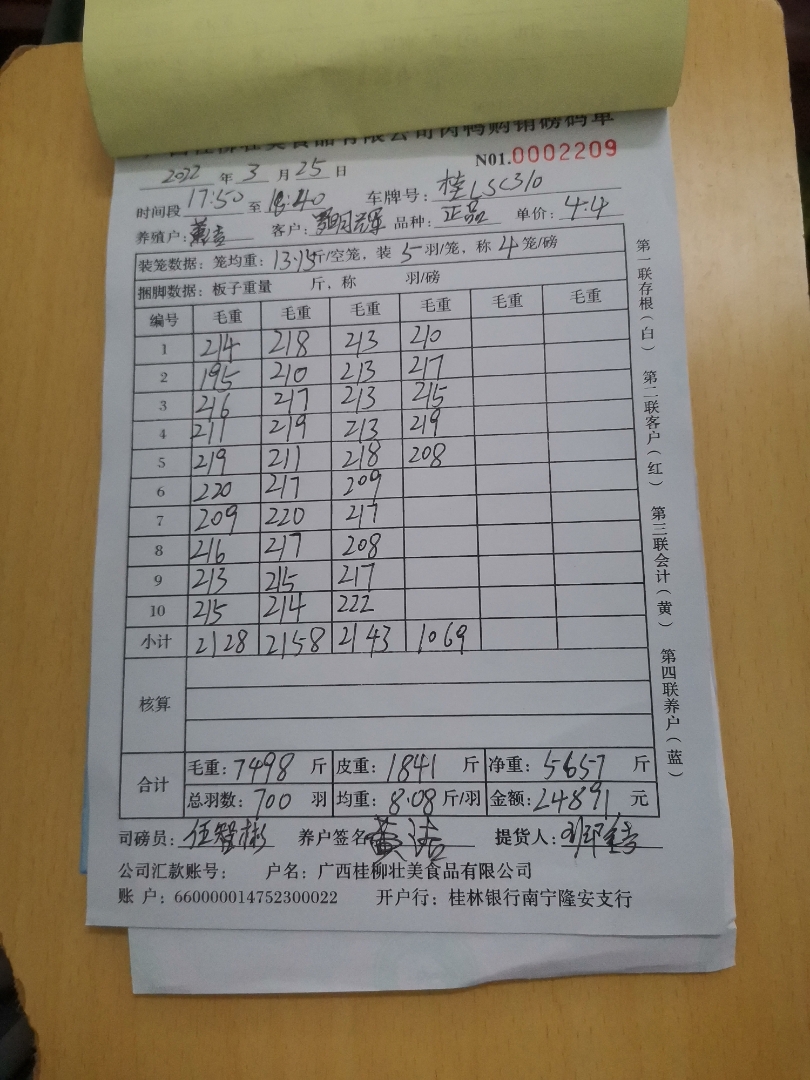 广西桂柳壮美食品有限公司肉鸭购销磅码单
2022 年 3 月 25 日 N01.0002209
时间段 17:50 至 18:40 车牌号: 桂LSC310
养殖户: 客户: 品种: 正品 单价: 4.4
装笼数据: 笼均重: 13.15斤/空笼, 装 5 羽/笼, 称 4 笼/磅
捆脚数据: 板子重量 斤, 称 羽/磅
编号 毛重 毛重 毛重 毛重 毛重 毛重
1 214 218 213 210
2 195 210 213 217
3 216 217 213 215
4 211 219 213 219
5 219 211 218 208
6 220 217 209
7 209 220 217
8 216 217 208
9 213 215 217
10 215 214 222
小计 2128 2158 2143 1069
核算
合计 毛重: 7498 斤 皮重: 1841 斤 净重: 5657 斤
总羽数: 700 羽 均重: 8.08 斤/羽 金额: 24891 元
司磅员: 伍智彬 养户签名 提货人:
公司汇款账号: 户名: 广西桂柳壮美食品有限公司
账 户: 660000014752300022 开户行: 桂林银行南宁隆安支行
第一联存根(白) 第二联客户(红) 第三联会计(黄) 第四联养户(蓝)